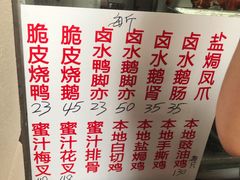 每斤
脆皮烧鸭 23
脆皮烧鹅 45
卤水鸭脚亦 23
卤水鹅脚亦 50
卤水鹅肾 35
卤水鹅肠 35
盐焗凤爪
蜜汁梅叉
蜜汁花叉
蜜汁排骨
本地白切鸡
本地盐焗鸡
本地手撕鸡
本地豉油鸡